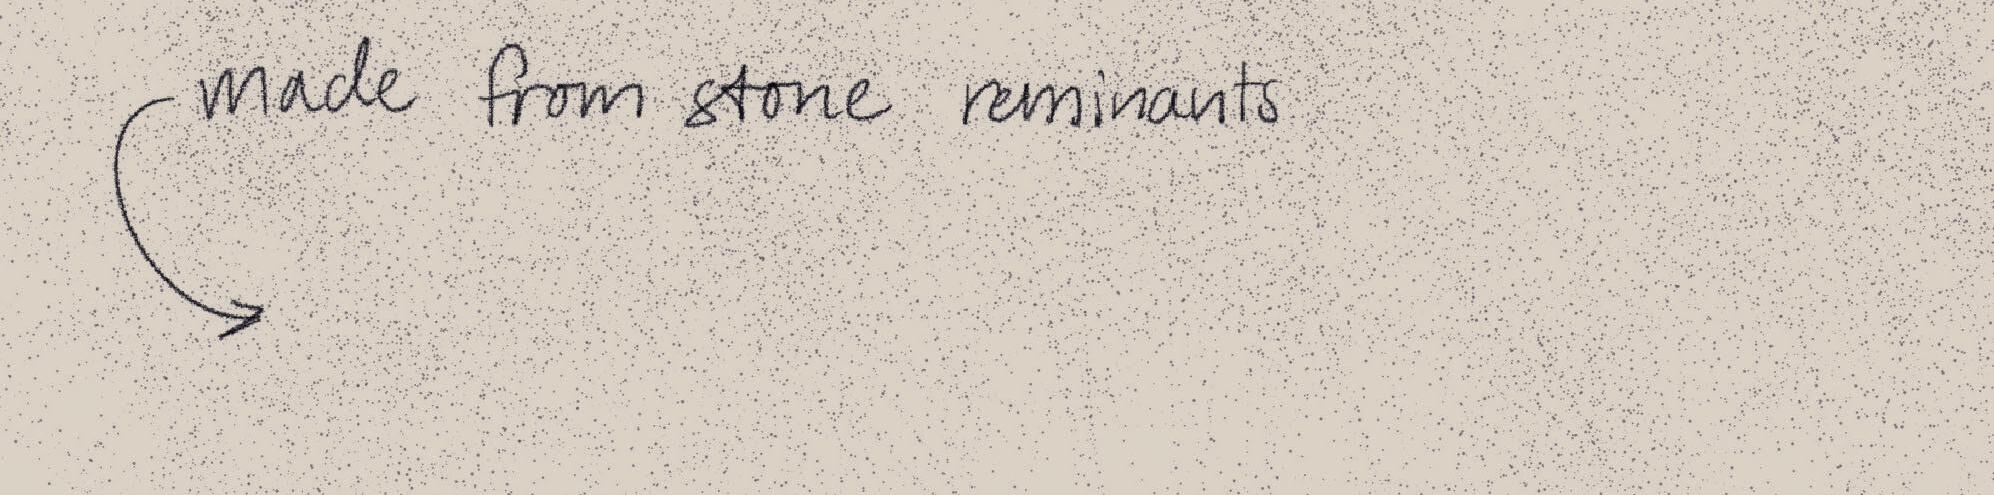 made from stone reminants